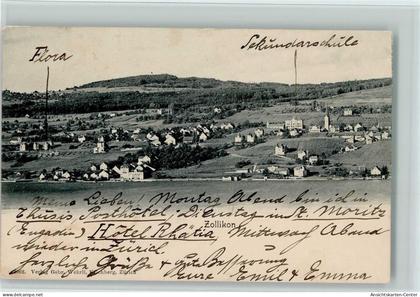 Flora
Sekundarschule
Meine Lieben! Montag Abend bin ich in
Thusis Posthôtel, Dienstag in St. Moritz
Zollikon
(Engadin) Hôtel Rhätia, Mittwoch Abend
wieder in Zürich
Verlag Gebr. Wehrli, Kilchberg, Zürich
Herzliche Grüße & gute Besserung
Eure Emil & Emma